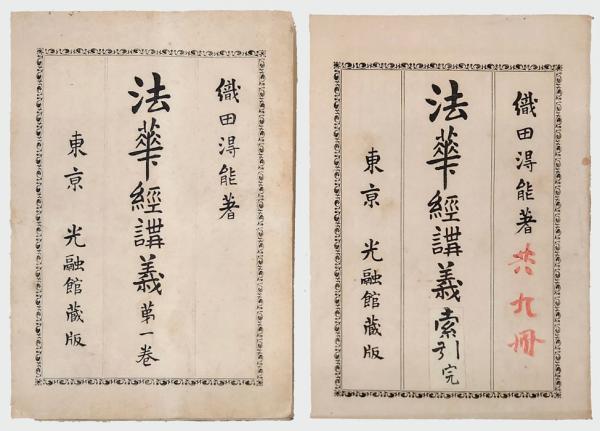 織田得能著
法華經講義 第一卷
東京 光融館藏版
織田得能著 共九冊
法華經講義 索引 完
東京 光融館藏版